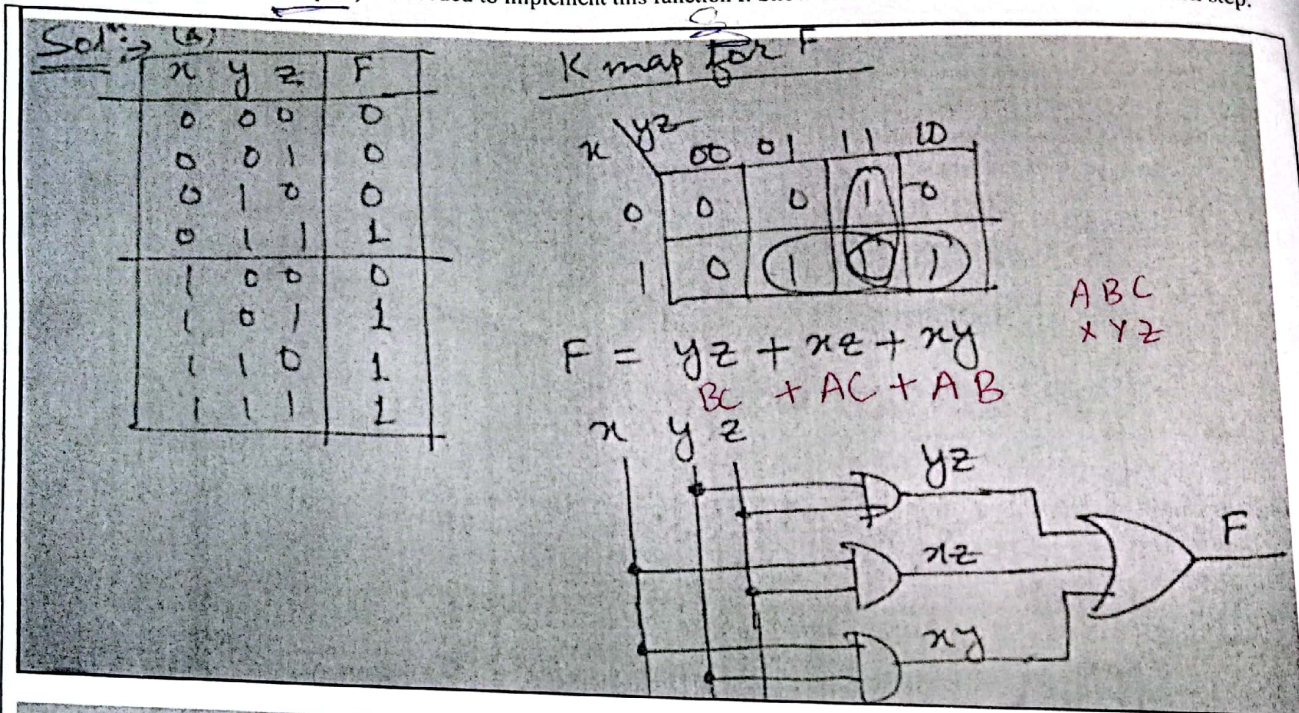 to implement this function
step.
Solⁿ:→ (a)
x y z F
0 0 0 0
0 0 1 0
0 1 0 0
0 1 1 1
1 0 0 0
1 0 1 1
1 1 0 1
1 1 1 1
K map for F
x \ yz
00 01 11 10
0 0 0 1 0
1 0 1 1 1
A B C
X Y Z
F = yz + xz + xy
BC + AC + AB
x y z
yz
xz
xy
F